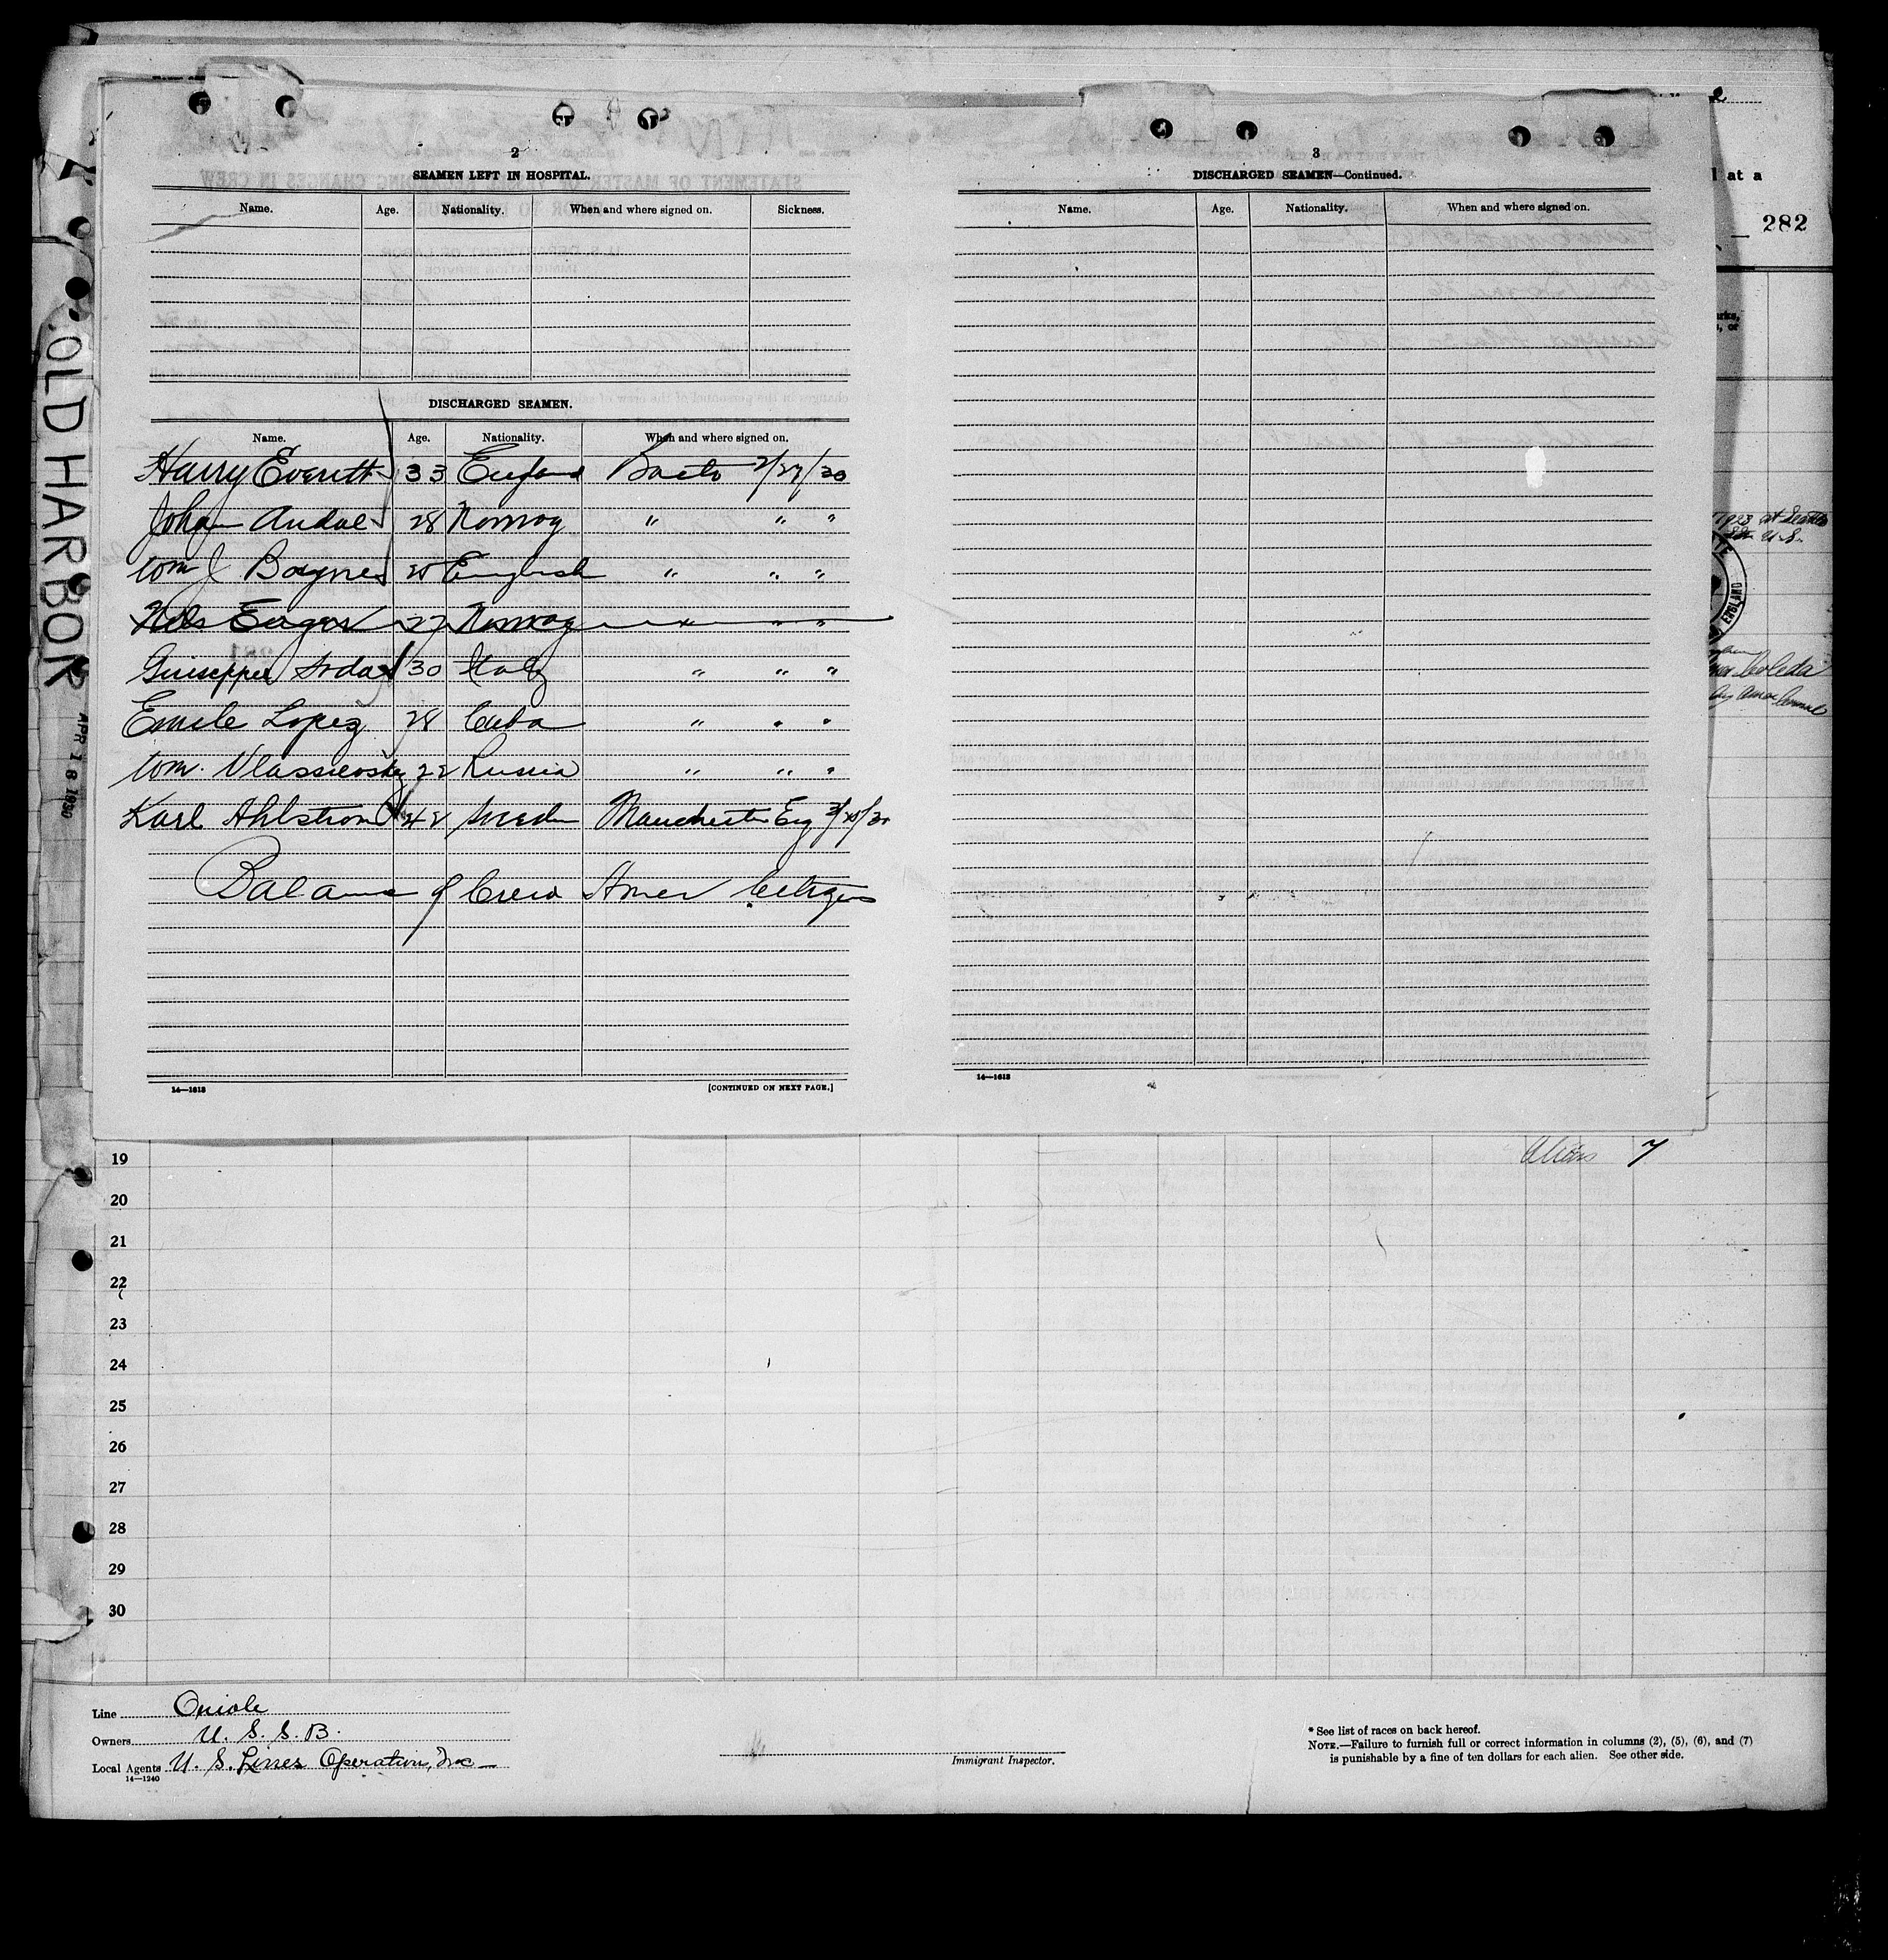 2
SEAMEN LEFT IN HOSPITAL.
Name. Age. Nationality. When and where signed on. Sickness.
DISCHARGED SEAMEN.
Name. Age. Nationality. When and where signed on.
Harry Everett 33 England 2/27/30
Johan Andal 28 Norway " " "
Wm J Baynes English " " "
Nels 27 Norway " " "
Giuseppe 30 Italy " " "
Emile Lopez 28 Cuba " " "
Wm. 22 Russia " " "
Karl Ahlstrom 42 Sweden Manchester Eng
Balance of Crew Amer Citizens
14—1613
[CONTINUED ON NEXT PAGE.]
3
DISCHARGED SEAMEN—Continued.
Name. Age. Nationality. When and where signed on.
14—1613
l at a
282
1923 at Seattle
U.S.
ENGLAND
OLD HARBOR
APR 18 1930
Aliens 7
19
20
21
22
23
24
25
26
27
28
29
30
Line Oriole
Owners U. S. S. B.
Local Agents U. S. Lines Operation, Inc
14—1240
Immigrant Inspector.
* See list of races on back hereof.
NOTE.—Failure to furnish full or correct information in columns (2), (5), (6), and (7)
is punishable by a fine of ten dollars for each alien. See other side.